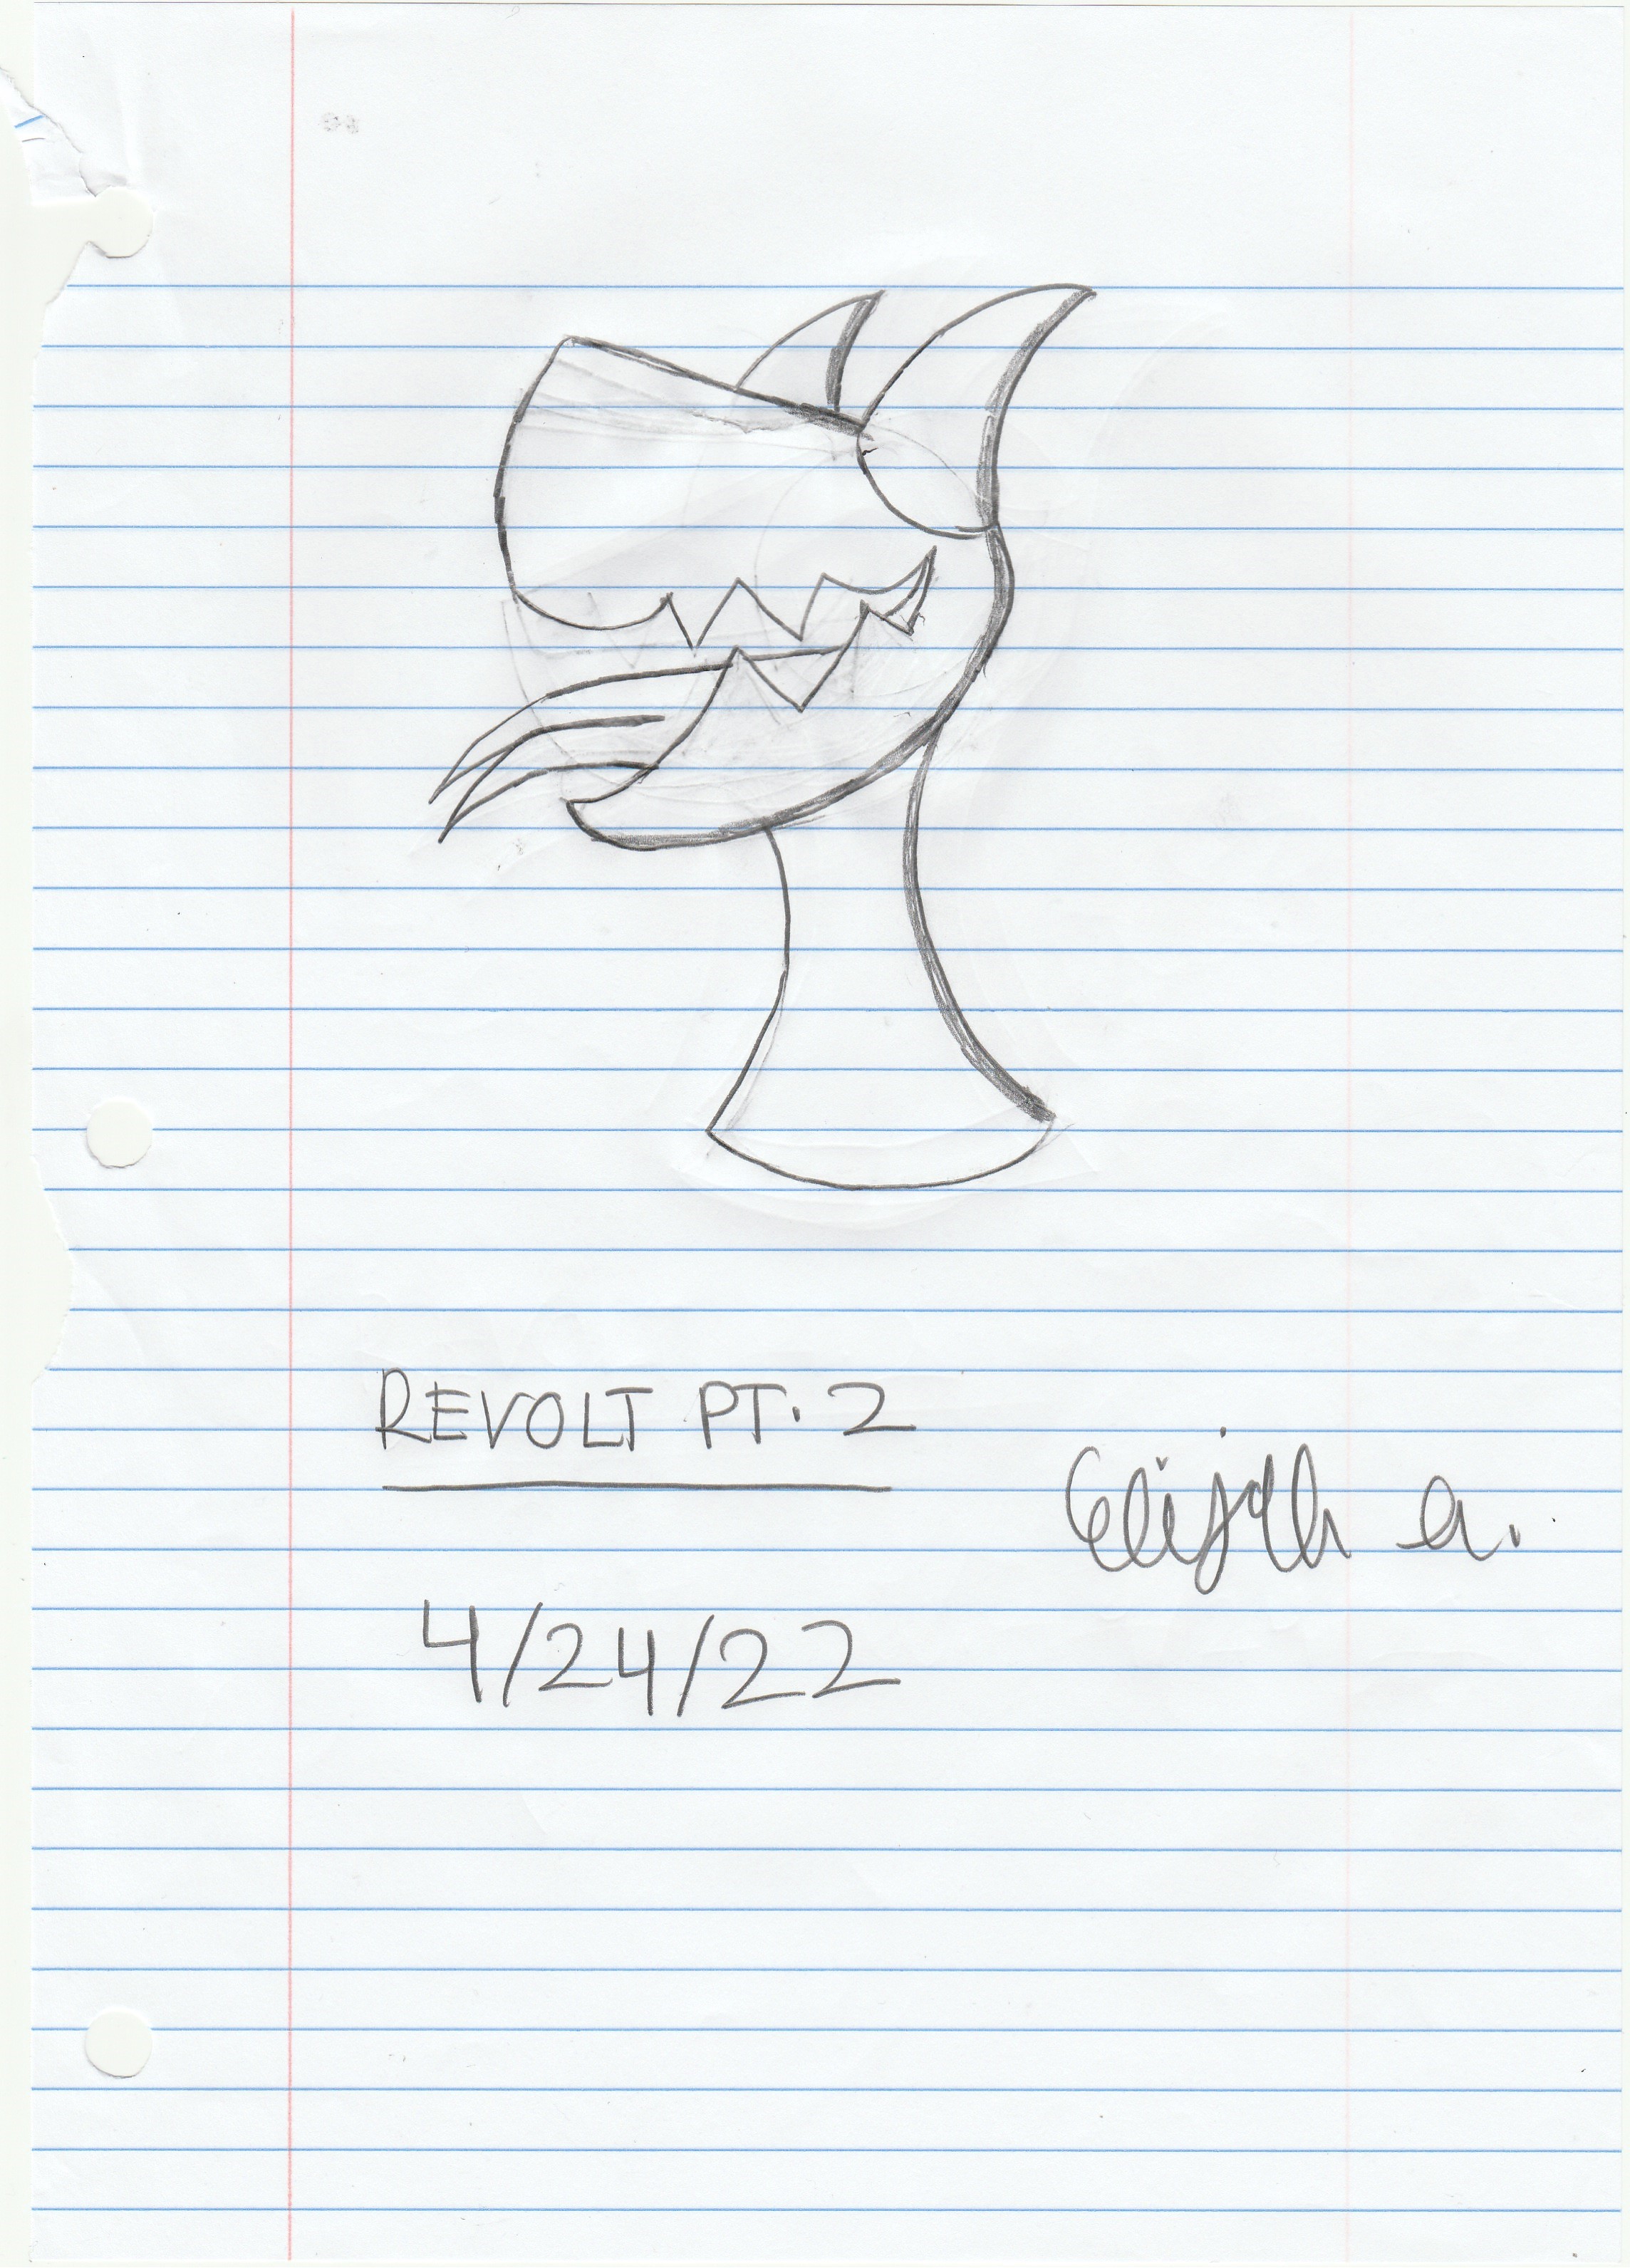 REVOLT PT. 2
Elijah a.
4/24/22